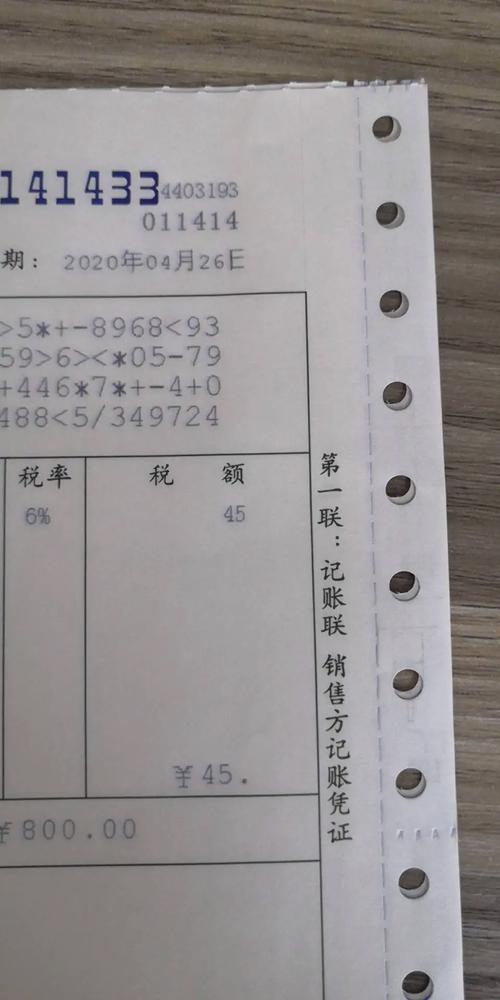 1414334403193
011414
期：2020年04月26日
>5*+-8968<93
59>6><*05-79
+446*7*+-4+0
488<5/349724
税率 税 额
6% 45
¥45.
¥800.00
第一联：记账联 销售方记账凭证